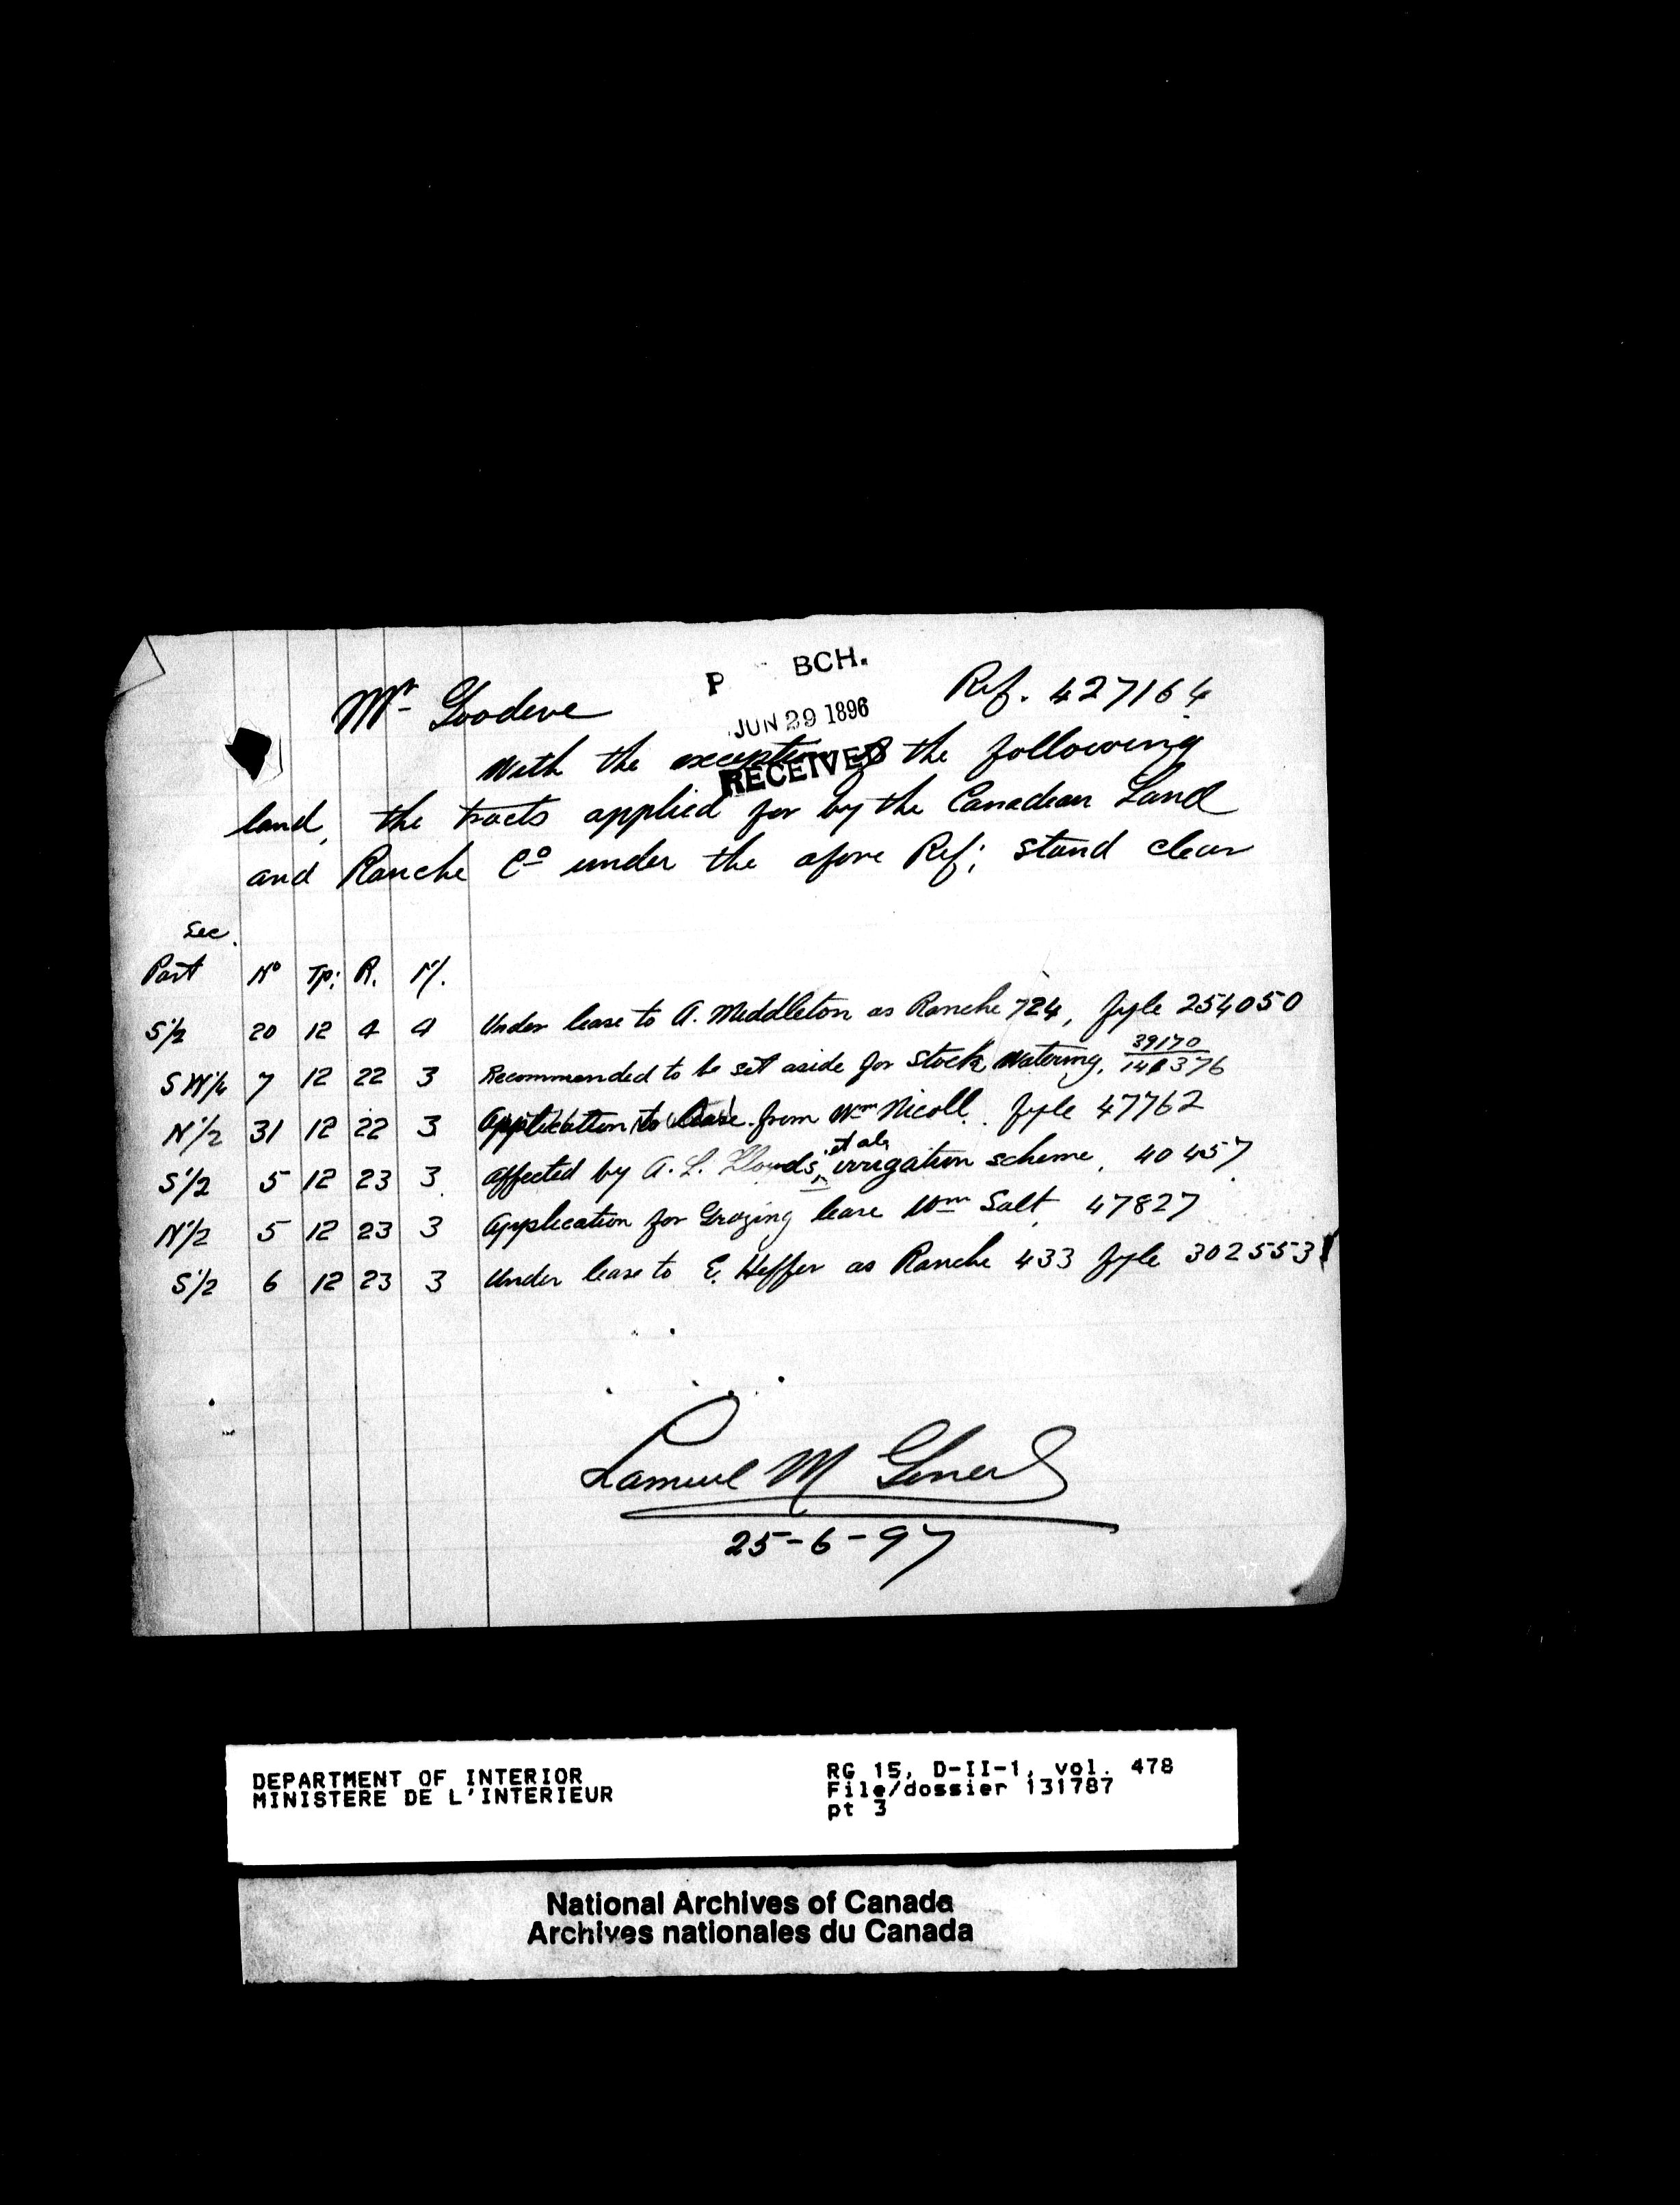 P BCH.
JUN 29 1896
RECEIVED
Mr Goodeve Ref. 427164
With the exception of the following
land, the tracts applied for by the Canadian Land
and Ranche Co under the afore Ref; stand clear
Sec.
Part No Tp; R. M.
S½ 20 12 4 4 Under lease to A. Middleton as Ranche 724, fyle 254050
SW¼ 7 12 22 3 Recommended to be set aside for stock watering. 39170/141376
N½ 31 12 22 3 Application to lease from Wm Nicoll. fyle 47762
S½ 5 12 23 3 affected by A. L. Lloyds, et als irrigation scheme, 40457
N½ 5 12 23 3 Application for Grazing lease Wm Salt, 47827
S½ 6 12 23 3 Under lease to E. Heffer as Ranche 433 fyle 302553
M
25-6-97
DEPARTMENT OF INTERIOR
MINISTERE DE L'INTERIEUR
RG 15, D-II-1, vol. 478
File/dossier 131787
pt 3
National Archives of Canada
Archives nationales du Canada